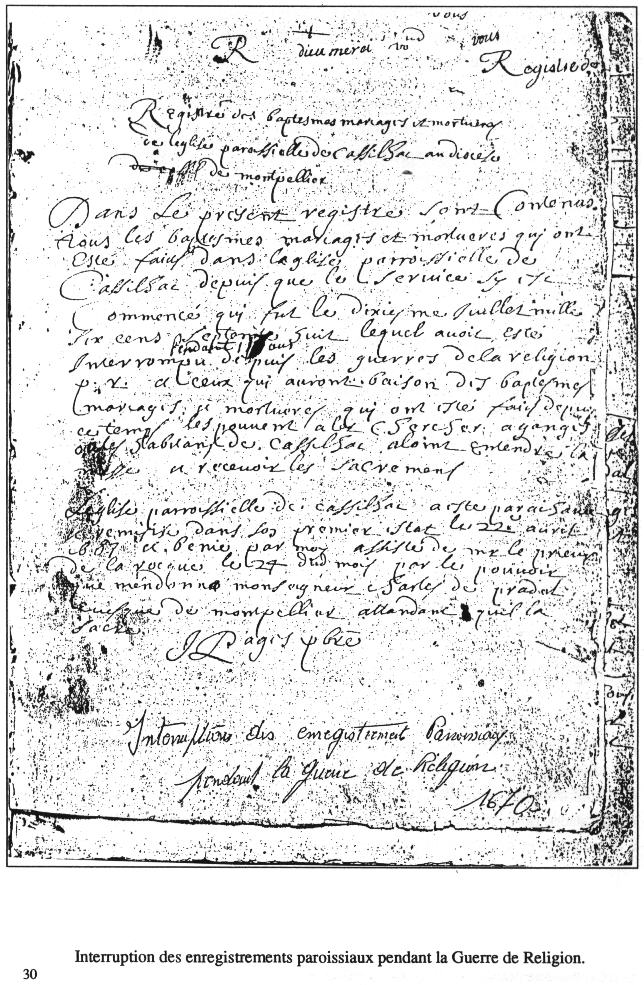 vous
R dieu merci vous
Registre de
Registre des baptesmes mariages et mortueres
de leglise parossielle de Cassilhac au diocese
de montpellier
Dans Le present registre sont Contenus
tous les baptesmes mariages et mortueres qui ont
este faits dans leglise parrossielle de
Cassilhac depuis que le service sy est
Commence qui fut le dixiesme Juillet mille
six cens septente huit lequel avoit este
pendant
Interrompu depuis les guerres de la religion
p. r. et ceux qui auront baison des baptesmes
mariages et mortueres qui ont esté fais depuis
ce temps les peuvent aler Chercher a ganges
ou les habitans de Cassilhac aloint entendre la
messe et recevoir les sacremens
Leglise parrossielle de Cassilhac a este
et remise dans son premier estat le 22e auril
et benie par moy assisté de mr le prieur
de la rocque le 24 dud mois par le pouvoir
que men donna monseigneur Charles de pradel
evesque de montpellier attandant quil la
sacre
J Pages pbre
Interruptions des enregistrement Paroissiaux
pendant la Guerre de Religion
1670
Interruption des enregistrements paroissiaux pendant la Guerre de Religion.
30